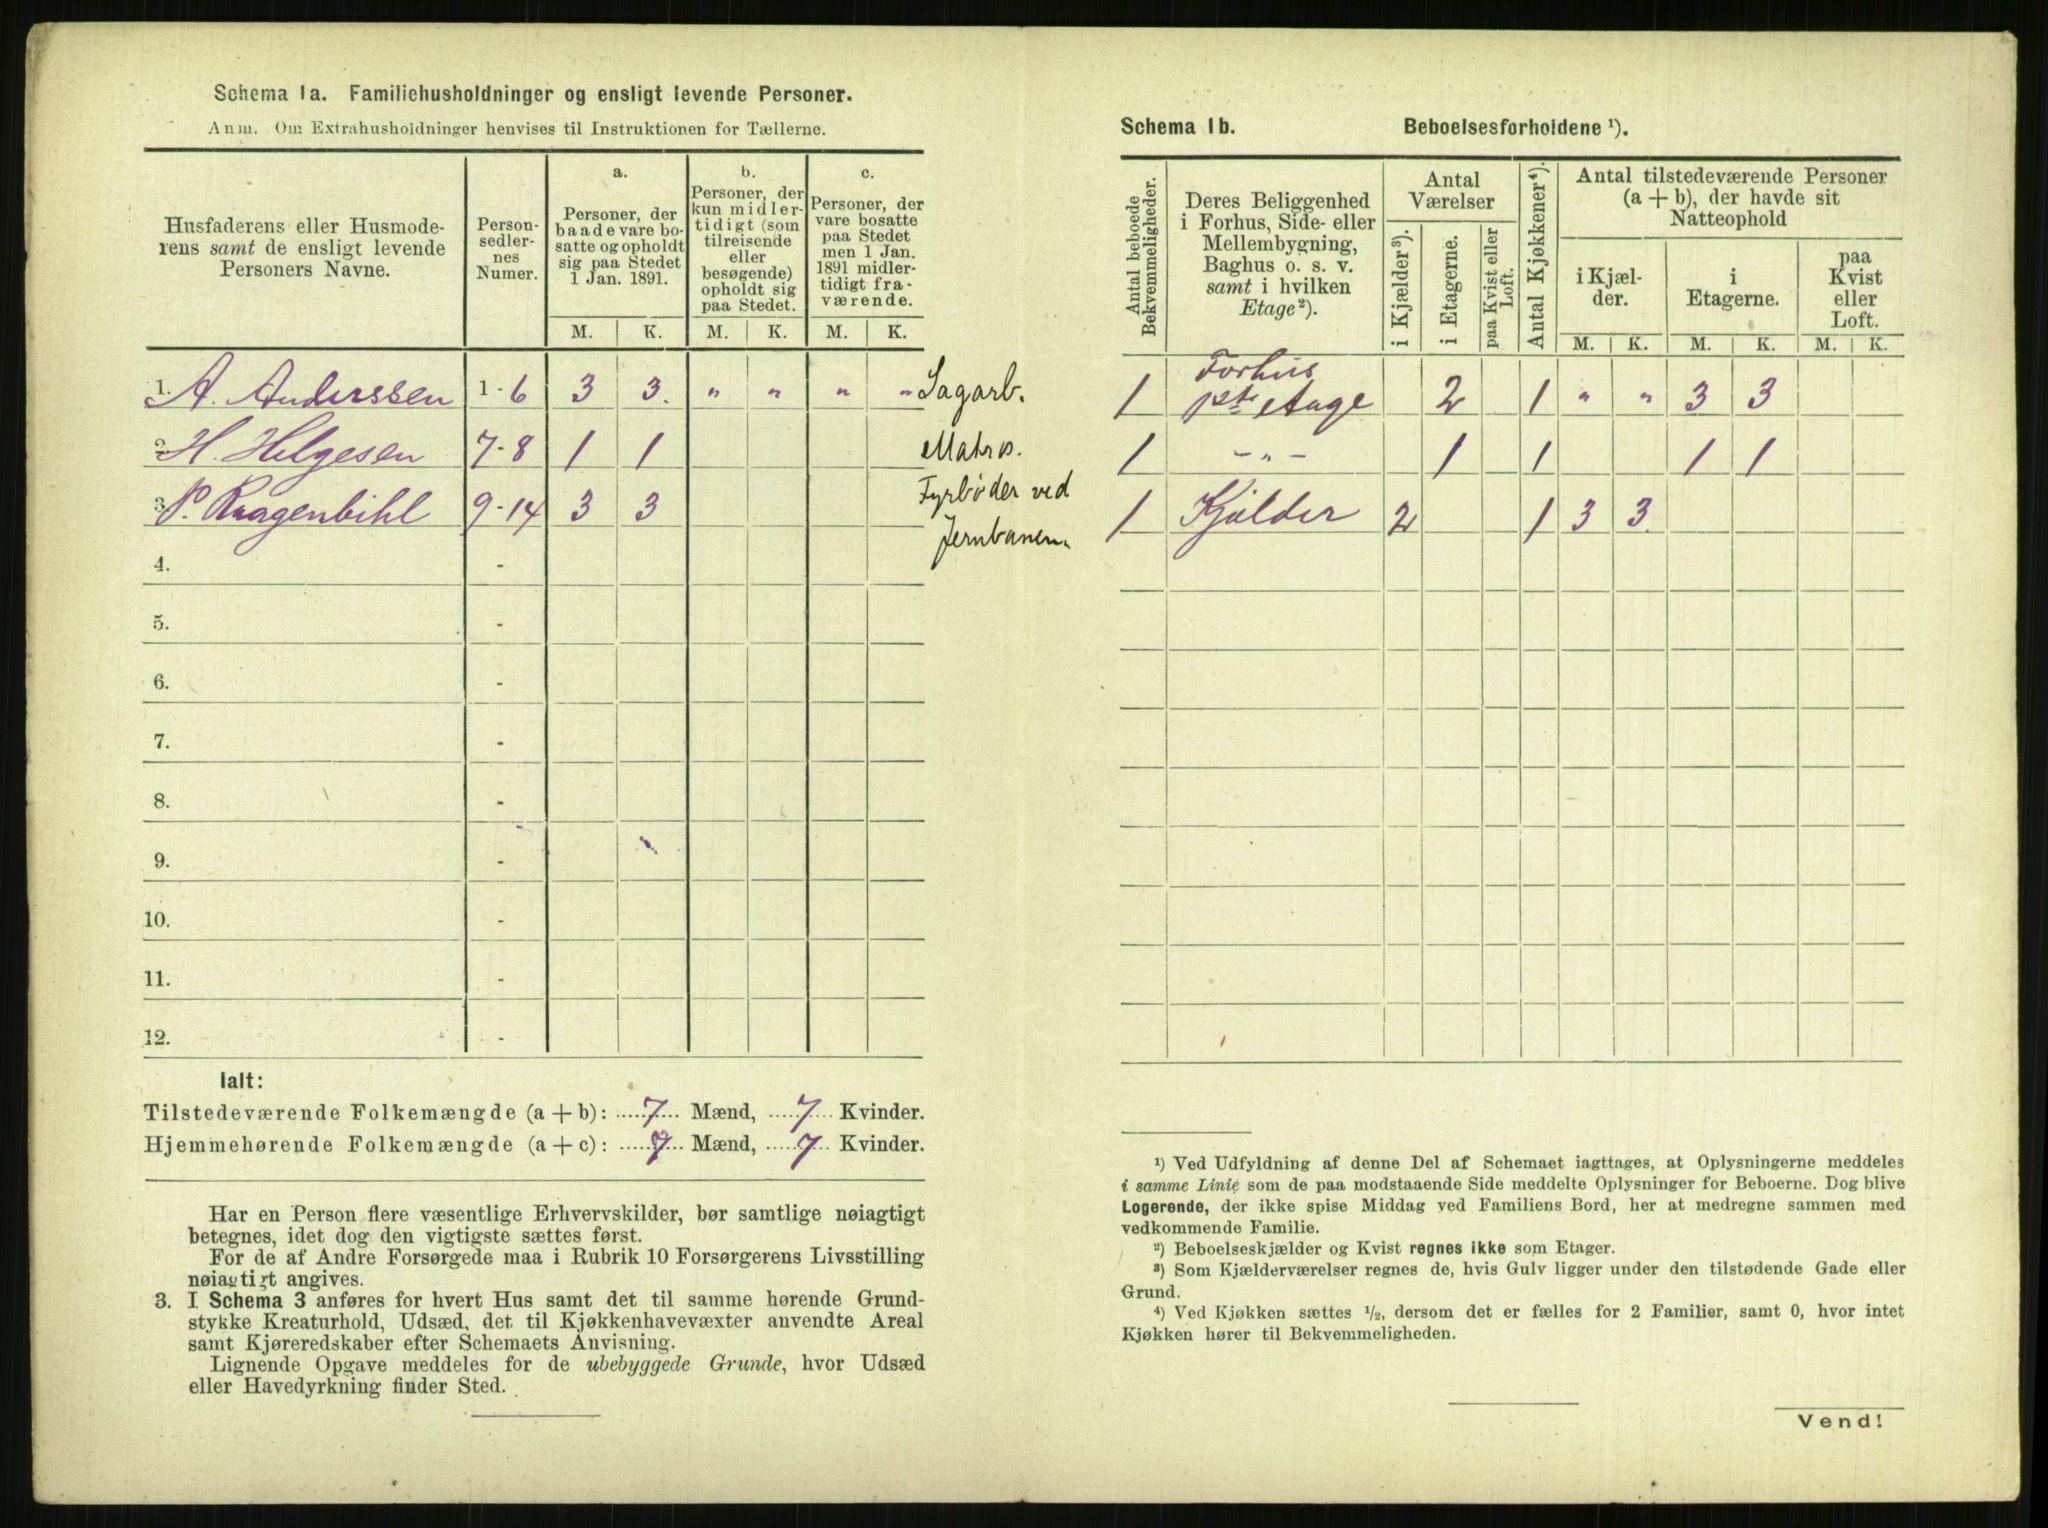 Schema 1a. Familiehusholdninger og ensligt levende Personer.
Anm. Om Extrahusholdninger henvises til Instruktionen for Tællerne.
Husfaderens eller Husmode-
rens samt de ensligt levende
Personers Navne.
Person-
sedler-
nes
Numer.
a.
Personer, der
baade vare bo-
satte og opholdt
sig paa Stedet
1 Jan. 1891.
b.
Personer, der
kun midler-
tidigt (som
tilreisende
eller
besøgende)
opholdt sig
paa Stedet.
c.
Personer, der
vare bosatte
paa Stedet
men 1 Jan.
1891 midler-
tidigt fra-
værende.
M. K. M. K. M. K.
1. A. Anderssen 1-6 3 3. " " " " Sagarb.
2. H. Helgesen 7-8 1 1 Matros.
3. P. Kragenbihl 9-14 3 3 Fyrbøder ved
Jernbanen.
4. -
5. -
6. -
7. -
8. -
9. -
10. -
11. -
12. -
Ialt:
Tilstedeværende Folkemængde (a+b): 7 Mænd, 7 Kvinder.
Hjemmehørende Folkemængde (a+c): 7 Mænd, 7 Kvinder.
Har en Person flere væsentlige Erhvervskilder, bør samtlige nøiagtigt
betegnes, idet dog den vigtigste sættes først.
For de af Andre Forsørgede maa i Rubrik 10 Forsørgerens Livsstilling
nøiagtigt angives.
3. I Schema 3 anføres for hvert Hus samt det til samme hørende Grund-
stykke Kreaturhold, Udsæd, det til Kjøkkenhavevæxter anvendte Areal
samt Kjøreredskaber efter Schemaets Anvisning.
Lignende Opgave meddeles for de ubebyggede Grunde, hvor Udsæd
eller Havedyrkning finder Sted.
Schema 1b. Beboelsesforholdene ¹).
Antal beboede
Bekvemmeligheder.
Deres Beliggenhed
i Forhus, Side- eller
Mellembygning,
Baghus o. s. v.
samt i hvilken
Etage²).
Antal
Værelser
i Kjælder³).
i Etagerne.
paa Kvist eller
Loft.
Antal Kjøkkener⁴).
Antal tilstedeværende Personer
(a + b), der havde sit
Natteophold
i Kjæl-
der.
i
Etagerne.
paa
Kvist
eller
Loft.
M. K. M. K. M. K.
Forhus
1 1ste Etage 2 1 " " 3 3
1 - " - 1 1 1 1
1 Kjælder 2 1 3 3.
¹) Ved Udfyldning af denne Del af Schemaet iagttages, at Oplysningerne meddeles
i samme Linie som de paa modstaaende Side meddelte Oplysninger for Beboerne. Dog blive
Logerende, der ikke spise Middag ved Familiens Bord, her at medregne sammen med
vedkommende Familie.
²) Beboelseskjælder og Kvist regnes ikke som Etager.
³) Som Kjælderværelser regnes de, hvis Gulv ligger under den tilstødende Gade eller
Grund.
⁴) Ved Kjøkken sættes ½, dersom det er fælles for 2 Familier, samt 0, hvor intet
Kjøkken hører til Bekvemmeligheden.
Vend!